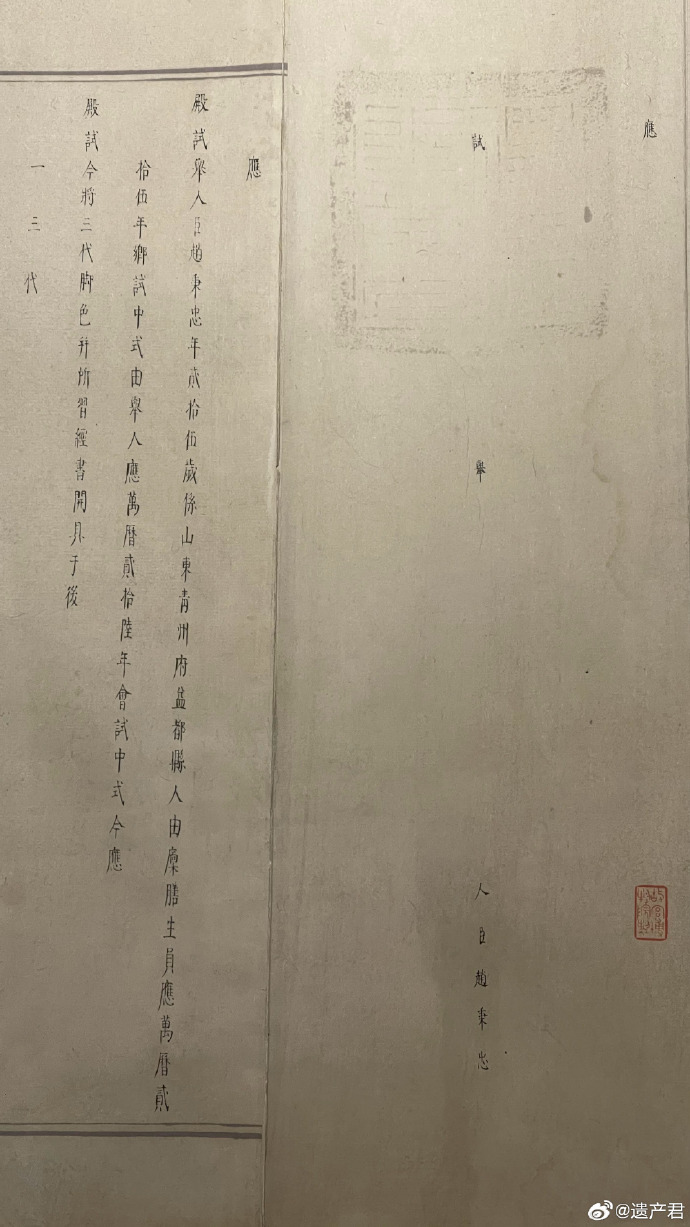 應
試舉人臣趙秉忠
應
殿試舉人臣趙秉忠年貳拾伍歲係山東青州府益都縣人由廩膳生員應萬曆貳
拾伍年鄉試中式由舉人應萬曆貳拾陸年會試中式今應
殿試今將三代脚色并所習經書開具于後
一三代
@遗产君